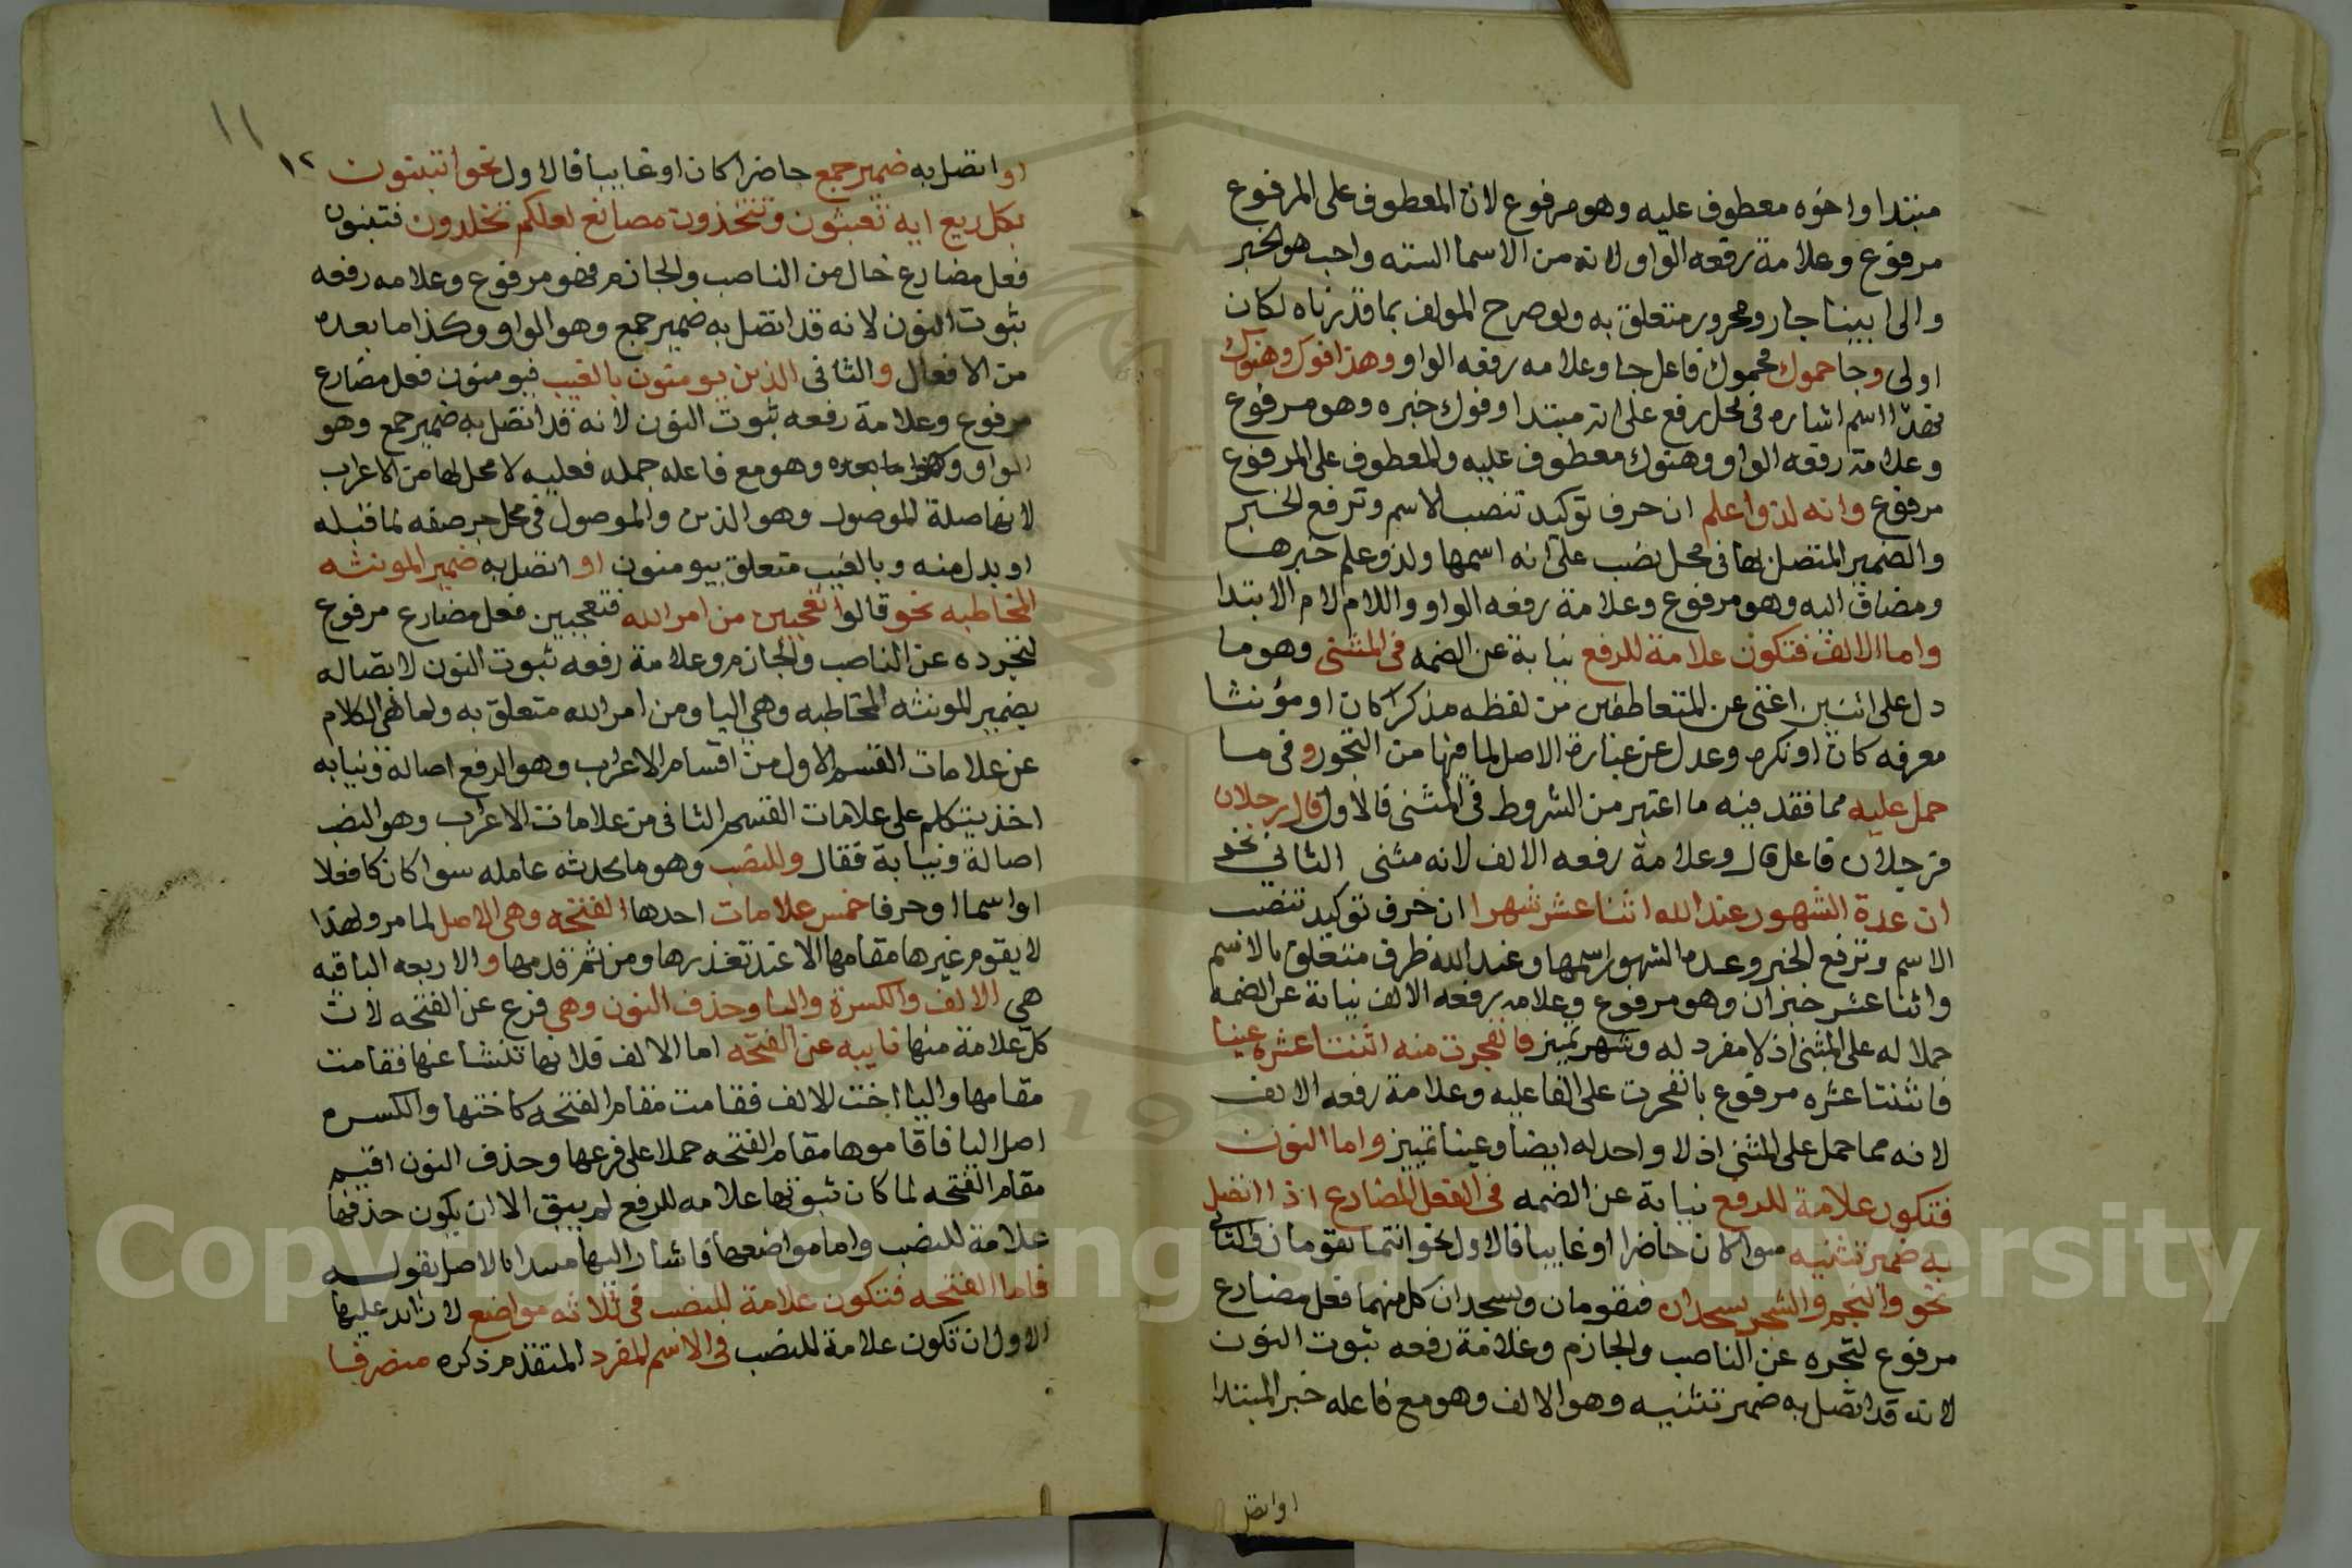 مبتدا واخوه معطوف عليه وهو مرفوع لان المعطوف على المرفوع
مرفوع وعلامة رفعه الواو لانه من الاسما الستة واحب هو الخبر
والى ابينا جار ومجرور متعلق به ولو صرح المولف بما قدرناه لكان
اولى وجا حموك فحموك فاعل جا وعلامه رفعه الواو وهذا فوك وهنوك
فهذا اسم اشاره فى محل رفع على انه مبتدا وفوك خبره وهو مرفوع
وعلامة رفعه الواو وهنوك معطوف عليه والمعطوف على المرفوع
مرفوع وانه لذو علم ان حرف توكيد تنصب الاسم وترفع الخبر
والضمير المتصل بها فى محل نصب على انه اسمها ولذو علم خبرها
ومضاف اليه وهو مرفوع وعلامة رفعه الواو واللام لام الابتدا
واما الالف فتكون علامة للرفع نيابة عن الضمه فى المثنى وهو ما
دل على اثنين اغنى عن المتعاطفين من لفظه مذكرا كان او مؤنثا
معرفه كان او نكره وعدل عن عبارة الاصل لما فيها من التجوز وفى ما
حمل عليه مما فقد فيه ما اعتبر من الشروط فى المثنى فالاول قال رجلان
فرجلان فاعل قال وعلامة رفعه الالف لانه مثنى الثانى نحو
ان عدة الشهور عند الله اثنا عشر شهرا ان حرف توكيد تنصب
الاسم وترفع الخبر وعدة الشهور اسمها وعند الله ظرف متعلق بالاسم
واثنا عشر خبر ان وهو مرفوع وعلامه رفعه الالف نيابة عن الضمه
حملا له على المثنى اذ لا مفرد له وشهر تمييز فانفجرت منه اثنتا عشره عينا
فاثنتا عشره مرفوع بانفجرت على الفاعليه وعلامة رفعه الالف
لانه مما حمل على المثنى اذ لا واحد له ايضا وعينا تمييز واما النون
فتكون علامة للرفع نيابة عن الضمه فى الفعل المضارع اذا اتصل
به ضمير تثنيه سوا كان حاضرا او غايبا فالاول نحو انتما تقومان والثانى
نحو والنجم والشجر يسجدان فتقومان ويسجدان كل منهما فعل مضارع
مرفوع لتجرده عن الناصب والجازم وعلامة رفعه ثبوت النون
لانه قد اتصل به ضمير تثنيه وهو الالف وهو مع فاعله خبر المبتدا
او اتصل
١١
١٢
او اتصل به ضمير جمع حاضرا كان او غايبا فالاول نحو اتبنون
بكل ريع ايه تعبثون وتتخذون مصانع لعلكم تخلدون فتبنون
فعل مضارع خال من الناصب والجازم فهو مرفوع وعلامه رفعه
ثبوت النون لانه قد اتصل به ضمير جمع وهو الواو وكذا ما بعده
من الافعال والثانى الذين يومنون بالغيب فيومنون فعل مضارع
مرفوع وعلامة رفعه ثبوت النون لانه قد اتصل به ضمير جمع وهو
الواو وكذا ما بعده وهو مع فاعله جمله فعليه لا محل لها من الاعراب
لانها صلة الموصول وهو الذين والموصول فى محل جر صفه لما قبله
او بدل منه وبالغيب متعلق بيومنون او اتصل به ضمير المونثه
المخاطبه نحو قالوا اتعجبين من امر الله فتعجبين فعل مضارع مرفوع
لتجرده عن الناصب والجازم وعلامة رفعه ثبوت النون لاتصاله
بضمير المونثه المخاطبه وهى اليا ومن امر الله متعلق به ولما انهى الكلام
عن علامات القسم الاول من اقسام الاعراب وهو الرفع اصالة ونيابه
اخذ يتكلم على علامات القسم الثانى من علامات الاعراب وهو النصب
اصالة ونيابة فقال وللنصب وهو ما يحدثه عامله سوا كان كافعلا
او اسما او حرفا خمس علامات احدها الفتحه وهى الاصل لما مر ولهذا
لا يقوم غيرها مقامها الا عند تعذرها ومن ثم قدمها والاربعه الباقيه
هى الالف والكسرة واليا وحذف النون وهى فرع عن الفتحه لان
كل علامة منها نايبه عن الفتحه اما الالف فلانها تنشا عنها فقامت
مقامها واليا اخت للالف فقامت مقام الفتحه كاختها والكسره
اصل اليا فاقاموها مقام الفتحه حملا على فرعها وحذف النون اقيم
مقام الفتحه لما كان ثبوتها علامه للرفع لم يبق الا ان يكون حذفها
علامة للنصب واما مواضعها فاشار اليها مبتدا بالاصل بقوله
فاما الفتحه فتكون علامة للنصب فى ثلاثه مواضع لا زائد عليها
الاول ان تكون علامة للنصب فى الاسم المفرد المتقدم ذكره منصرفا
Copyright © King Saud University